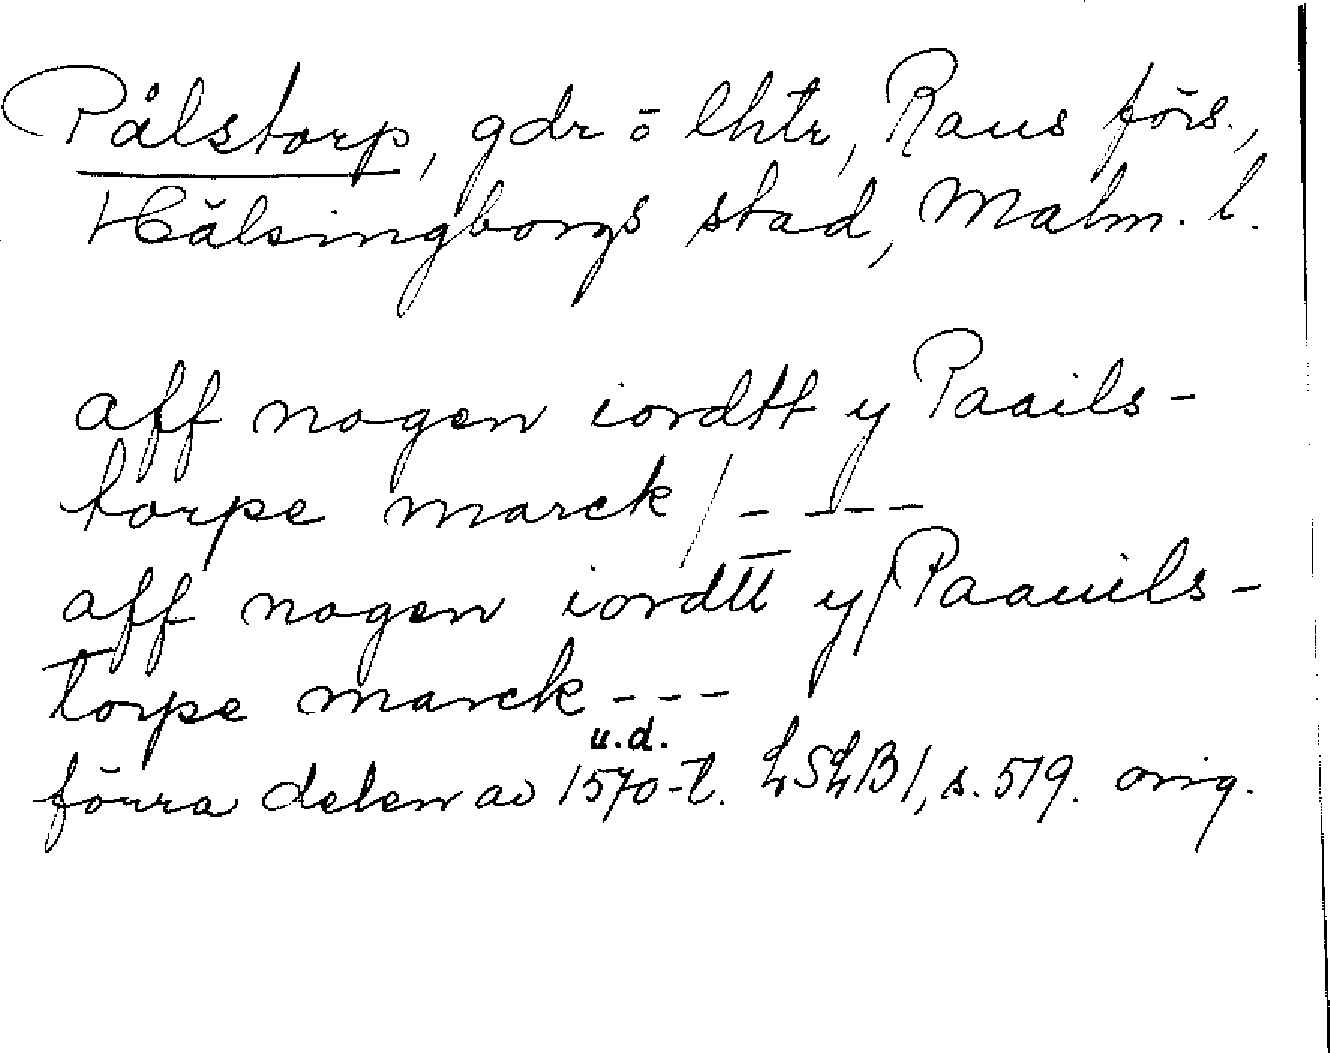 Pålstorp, gdr o lhtr, Raus förs.,
Hälsingborgs stad, Malm. l.
aff nogen iordtt y Paails-
torpe marck / - ---
aff nogen iordtt y Paauils-
torpe marck ---
u.d.
förra delen av 1570-t. LSLB 1, s. 519. orig.